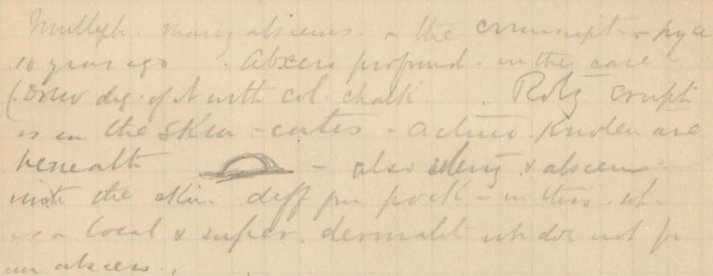 Multiple. many abscesses - the circumscript - pya
10 years ago. Abscess profund. in the case
(Draw dig. of N with col. chalk. Rotz erupt
is in the skin - cutis - actino. Knoten are
beneath - also & abscess
into the skin. diff fm pock - in this
is a local & super. dermatit wh does not fm
an abscess.